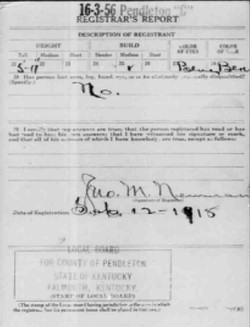 16-3-56 Pendleton "C"
REGISTRAR'S REPORT
DESCRIPTION OF REGISTRANT
HEIGHT BUILD COLOR OF EYES COLOR OF
Tall Medium Short Slender Medium Stout
5-11
29 Has person lost arm, leg, hand, eye, or is he obviously physically disqualified?
(Specify)
No.
30 I certify that my answers are true; that the person registered has read or has
had read to him his own answers; that I have witnessed his signature or mark,
and that all of his answers of which I have knowledge are true, except as follows:
Jno. M. Newman
(Signature of Registrar)
Date of Registration 12-1918
LOCAL BOARD
FOR COUNTY OF PENDLETON
STATE OF KENTUCKY
FALMOUTH, KENTUCKY.
(STAMP OF LOCAL BOARD)
(The stamp of the Local Board having jurisdiction of the area in which
the registrant has his permanent home shall be placed in this box.)